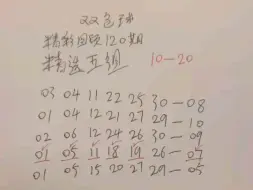 双色球
精彩回顾120期
精选五组 10—20
03 04 11 22 25 30—08
01 04 12 21 27 29—10
02 06 12 24 26 30—09
01 05 11 18 19 26—07
01 05 15 20 27 29—05